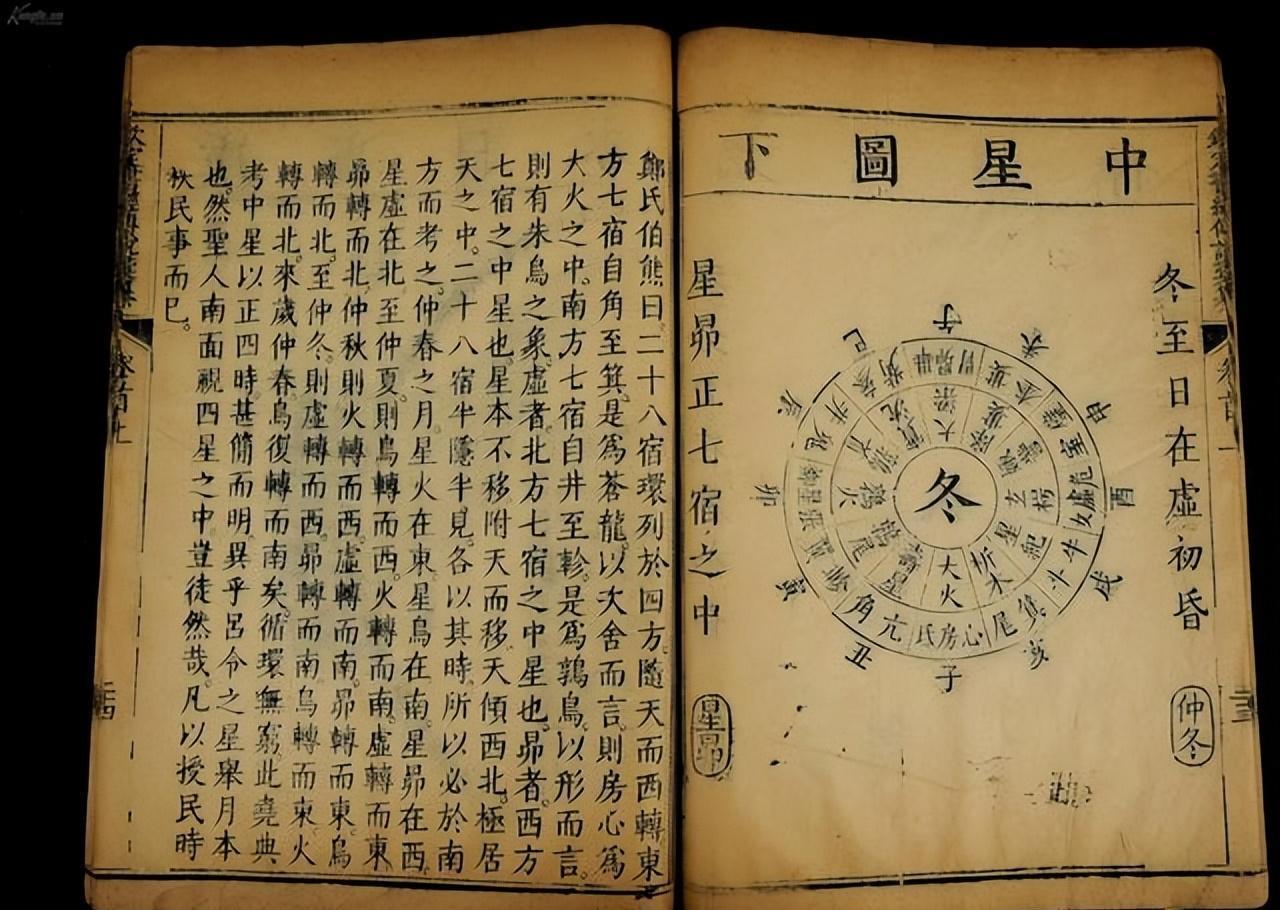 中星圖下
冬至日在虛初昏
仲冬
冬
大火
析木
星紀
玄枵
大梁
鶉火
鶉尾
壽星
角亢
氐房心
尾箕
斗牛
女虛危
子
丑
寅
卯
辰
巳
午
申
酉
戌
亥
星昴正七宿之中
星昴
二十三
鄭氏伯熊曰二十八宿環列於四方隨天而西轉東
方七宿自角至箕是爲蒼龍以次舍而言則房心爲
大火之中南方七宿自井至軫是爲鶉鳥以形而言
則有朱鳥之象虛者北方七宿之中星也昴者西方
七宿之中星也星本不移附天而移天傾西北極居
天之中二十八宿半隱半見各以其時所以必於南
方而考之仲春之月星火在東星鳥在南星昴在西
星虛在北至仲夏則鳥轉而西火轉而南虛轉而東
昴轉而北仲秋則火轉而西虛轉而南昴轉而東鳥
轉而北至仲冬則虛轉而西昴轉而南鳥轉而東火
轉而北來歲仲春鳥復轉而南矣循環無窮此堯典
考中星以正四時甚簡而明異乎呂令之星舉月本
也然聖人南面視四星之中豈徒然哉凡以授民時
秩民事而已
二十四